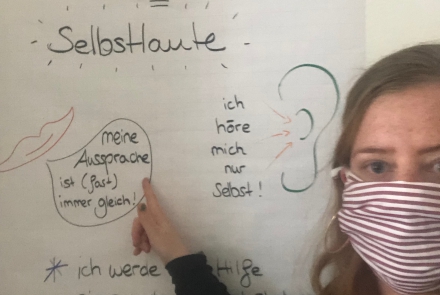 Selbstlaute
meine
Aussprache
ist (fast)
immer gleich!
ich
höre
mich
nur
Selbst!
* ich werde Hilfe